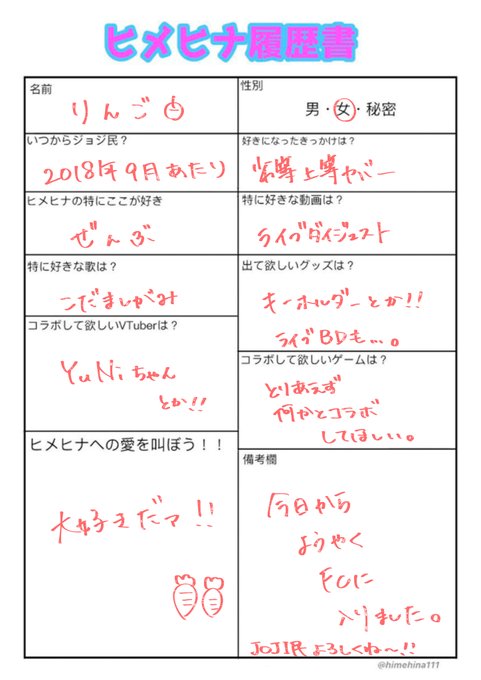 ヒメヒナ履歴書
名前
りんご
性別
男・女・秘密
いつからジョジ民？
2018年9月あたり
好きになったきっかけは？
劣等上等カバー
ヒメヒナの特にここが好き
ぜんぶ
特に好きな動画は？
ライブダイジェスト
特に好きな歌は？
こだましがみ
出て欲しいグッズは？
キーホルダーとか!!
ライブBDも...。
コラボして欲しいVTuberは？
YuNiちゃん
とか!!
コラボして欲しいゲームは？
とりあえず
何かとコラボ
してほしい。
ヒメヒナへの愛を叫ぼう！！
大好きだァ!!
備考欄
今日から
ようやく
FCに
入りました。
JOJI民よろしくね〜!!
@himehina111